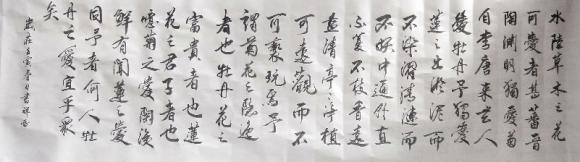 水陸草木之花
可愛者甚蕃晉
陶淵明獨愛菊
自李唐来世人
愛牡丹予獨愛
蓮之出淤泥而
不染濯清漣而
不妖中通外直
不蔓不枝香遠
益清亭亭植
可遠觀而不
可褻玩焉予
謂菊花之隱逸
者也牡丹花之
富貴者也蓮
花之君子者也
噫菊之愛陶後
鮮有聞蓮之愛
同予者何人牡
丹之愛宜乎眾
矣
歲在壬寅春日書